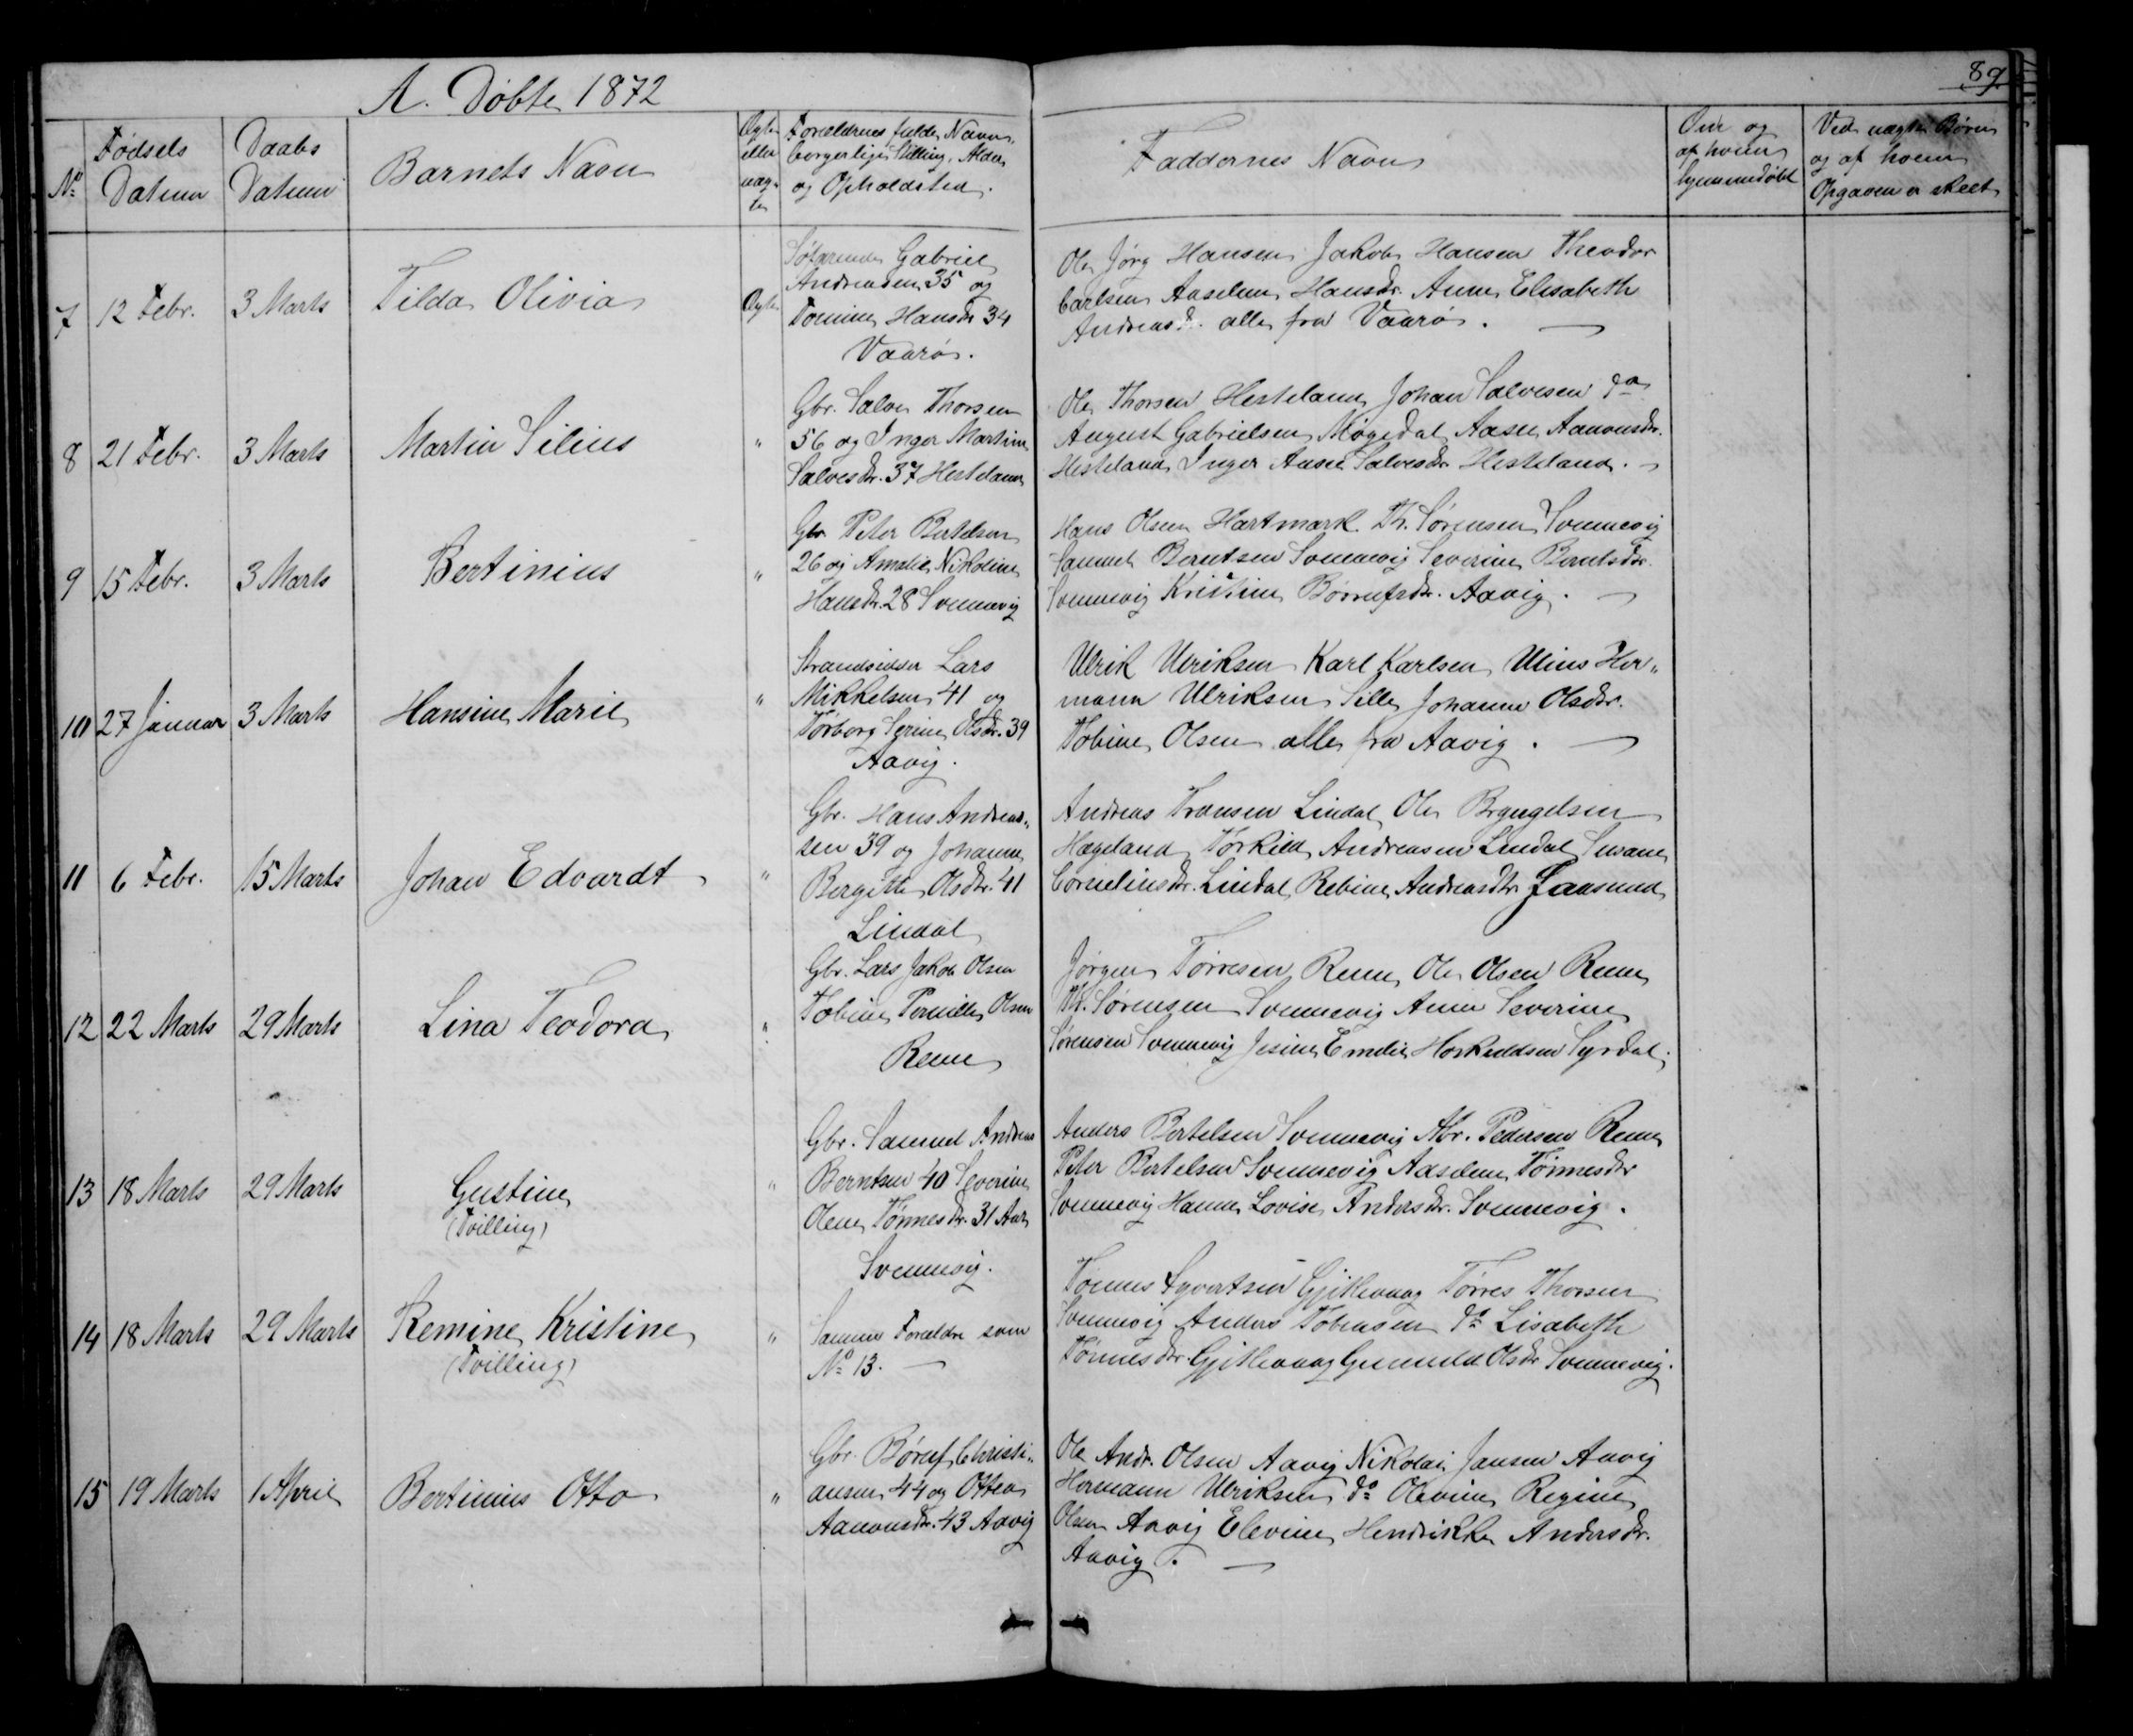 A. Döbte 1872
89
No
Fødsels Datum
Daabs Datum
Barnets Navn
Ægte eller uægte
Forældrenes fulde Navn, borgerlige Stilling, Alder og Opholdsted.
Faddernes Navn
Om og af hvem hjemmedøbt
Ved uægte Børn og af hvem Opgaven er skeet
7 12 Febr. 3 Marts Tilda Olivia Ægte
Søfarende Gabriel
Andreasen 35 og
Tomine Hansdr 34
Vaarø.
Ole Jørg Hansen Jakob Hansen Theodor
Carlsen Aaselene Hansdr. Anne Elisabeth
Andreasdr. alle fra Vaarø.
8 21 Febr. 3 Marts Martin Silius "
Gbr. Salve Thorsen
56 og Inger Martine
Salvesdr. 37 Hesteland
Ole Thorsen Hesteland Johan Salvesen do
August Gabrielsen Møgedal Aase Aanonsdr.
Hesteland Inger Aase Salvesdr. Hesteland.
9 15 Febr. 3 Marts Bertinius "
Gbr Peter Bertelsen
26 og Amalie Nikoline
Hansdr. 28 Svennevig
Hans Olsen Hartmark. Th. Sørensen Svennevig
Samuel Berntsen Svennevig Severine Berntsdr.
Svennevig Kristine Børrufsdr. Aavig.
10 27 Januar 3 Marts Hansine Marie "
Strandsidder Lars
Mikkelsen 41 og
Torborg Serine Olsdr. 39
Aavig.
Ulrik Ulriksen Karl Karlsen Ulius Her"
mann Ulriksen Sille Johanne Olsdr.
Tobine Olsen alle fra Aavig.
11 6 Febr. 15 Marts Johan Edvardt "
Gbr. Hans Andreas"
sen 39 og Johanne
Bergitte Olsdr. 41
Lindal
Andreas Transen Lindal Ole Bryngelsen
Hægeland Torkild Andreasen Lindal Susane
Corneliusdr. Lindal Rebine Andreasdtr
12 22 Marts 29 Marts Lina Teodora "
Gbr. Lars Jakob Olsen
Tobine Pernille Olsen
Reme
Jørgen Tørresen Reme Ole Olsen Reme
Th. Sørensen Svennevig Anne Severine
Sørensen Svennevig Jesine Emelie Hoskuldsen Syrdal.
13 18 Marts 29 Marts Gustine "
(Tvilling)
Gbr. Samuel Andreas
Berntsen 40 Severine
Olene Tønnesdr. 31 Aar
Svennevig.
Anders Bertelsen Svennevig Abr. Pedersen Reme
Peter Bertelsen Svennevig Aaselene Tønnesdr
Svennevig Hanne Lovise Andersdr. Svennevig.
14 18 Marts 29 Marts Remine Kristine "
(Tvilling)
Samme Forældre som
No 13.
Tønnes Syvertsen Gjitlevaag Tørres Thorsen
Svennevig Anders Tobiassen do Lisabeth
Tønnesdr. Gjitlevaag Gunnuld Olsdr Svennevig.
15 19 Marts 1 April Bertinius Otto "
Gbr. Børuf Christi"
ansen 44 og Ottea
Aanonsdr. 43 Aavig
Ole Andr. Olsen Aavig Nikolai Jansen Aavig
Hermann Ulriksen do Olevine Regine
Olsen Aavig Elevine Hendrikke Andersdr.
Aavig.